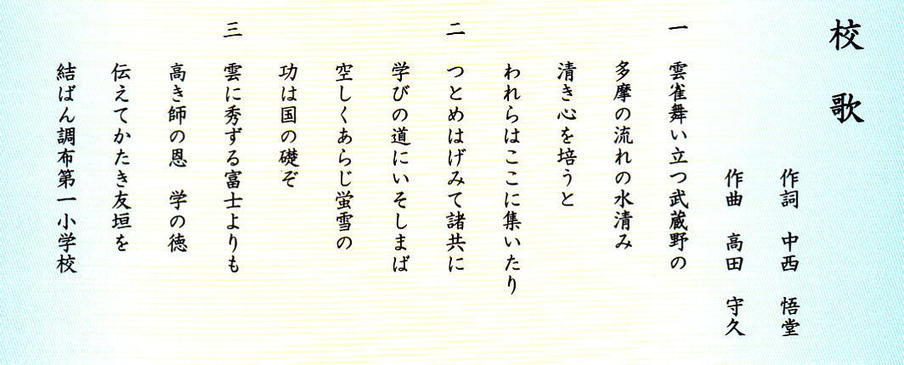 校歌
作詞 中西 悟堂
作曲 高田 守久
一 雲雀舞い立つ武蔵野の
多摩の流れの水清み
清き心を培うと
われらはここに集いたり
二 つとめはげみて諸共に
学びの道にいそしまば
空しくあらじ蛍雪の
功は国の礎ぞ
三 雲に秀ずる富士よりも
高き師の恩 学の徳
伝えてかたき友垣を
結ばん調布第一小学校